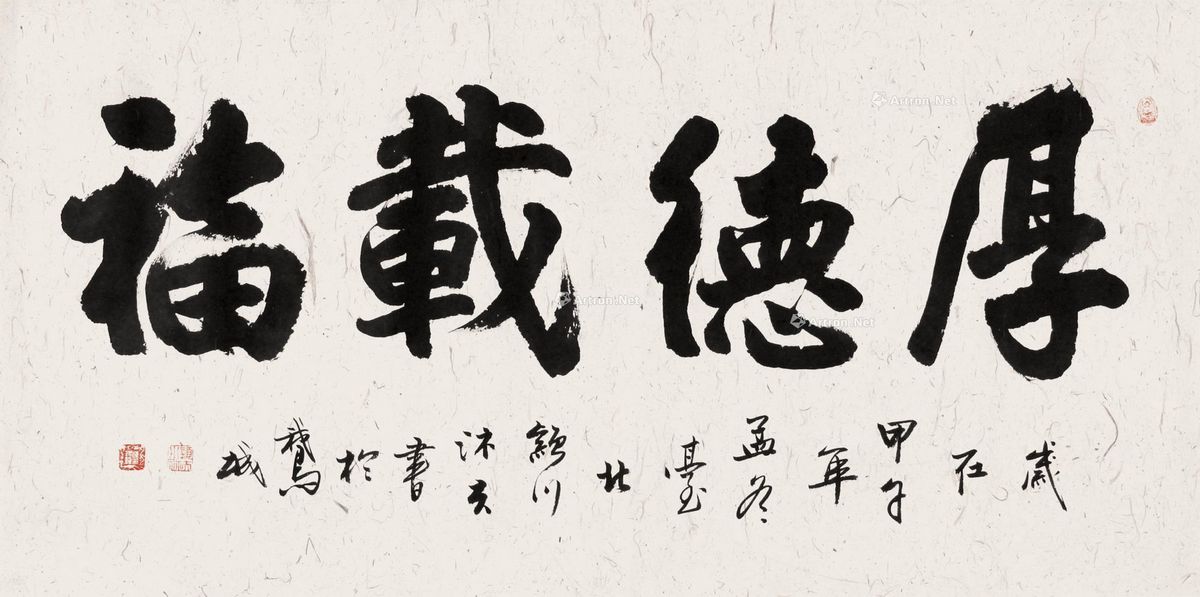 厚德載福
歲在甲午年孟冬臺北川沐書於鵞城
Artron.Net
Artron.Net
Artron.Net